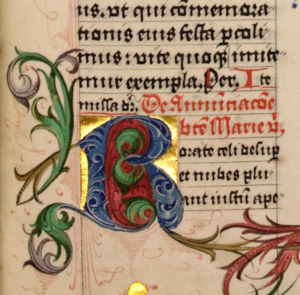 us. vt qui cõmemora
tionis eius festa p̱coli
mus: vite quoq̨ imite
mur exempla. Per. Ite
missa ẽ. De Annũciacõe
btẽ Marie v̄.
Rorate celi desup
et nubes plu
ant iustũ ape